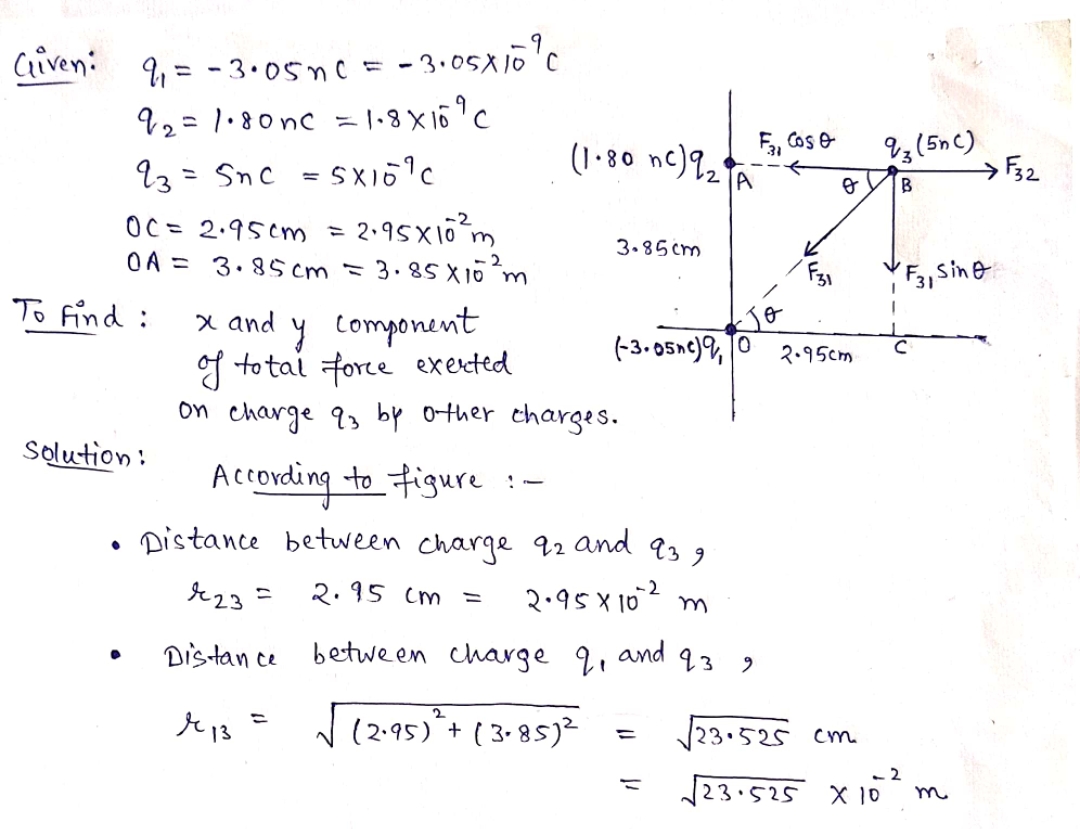 Given: q₁ = -3.05nC = -3.05×10⁻⁹C
q₂ = 1.80nC = 1.8×10⁻⁹C
q₃ = 5nC = 5×10⁻⁹C
OC = 2.95cm = 2.95×10⁻²m
OA = 3.85cm = 3.85×10⁻²m
(1.80 nC)q₂
A
F₃₁ Cosθ
q₃(5nC)
F₃₂
θ
B
3.85cm
F₃₁
F₃₁ Sinθ
θ
(-3.05nC)q₁
O
2.95cm
C
To find : x and y component
of total force exerted
on charge q₃ by other charges.
Solution:
According to figure :-
• Distance between charge q₂ and q₃,
r₂₃ = 2.95 cm = 2.95×10⁻² m
• Distance between charge q₁ and q₃,
r₁₃ = √((2.95)² + (3.85)²) = √23.525 cm
= √23.525 × 10⁻² m